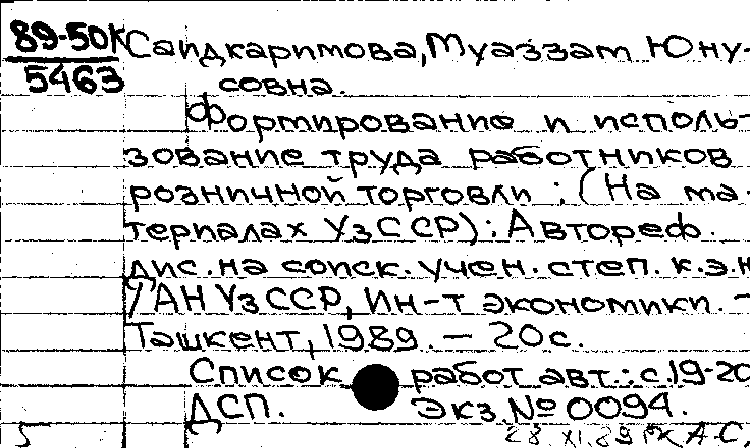 89-50к
5463
Саидкаримова, Муаззам Юну-
совна.
Формирование и исполь-
зование труда работников
розничной торговли : (На ма-
териалах УзССР): Автореф.
дис. на соиск. учен. степ. к.э.н
/ АН УзССР, Ин-т экономики. -
Ташкент, 1989. - 20с.
Список работ авт.: с.19-20
ДСП. Экз. № 0094.
28.XI.89 А.С.